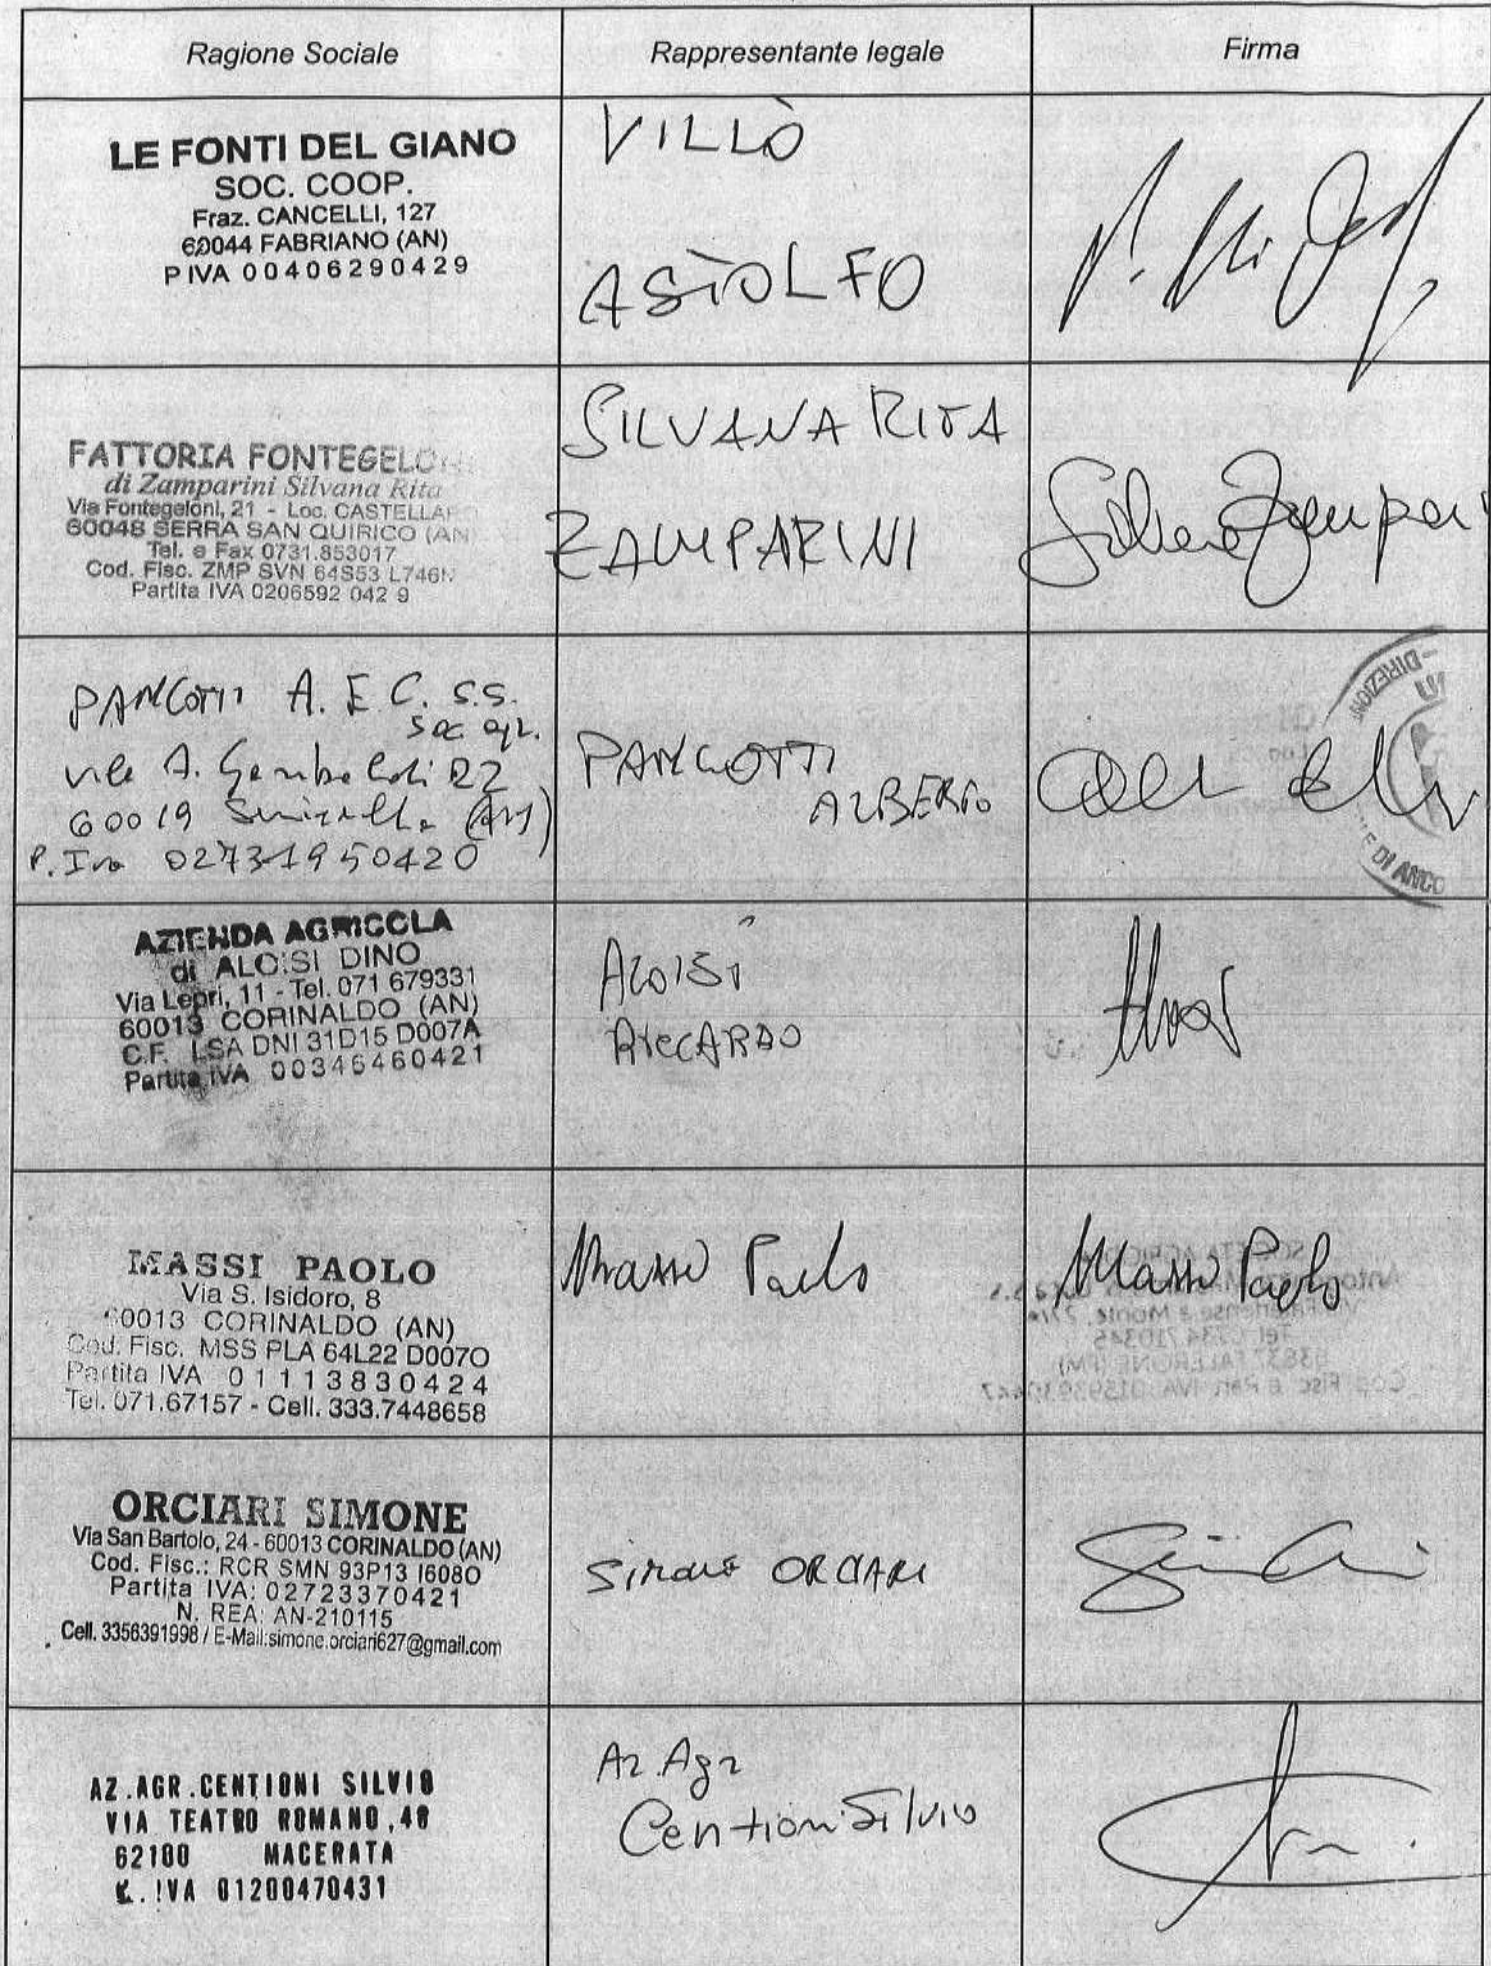 Ragione Sociale
Rappresentante legale
Firma
LE FONTI DEL GIANO
SOC. COOP.
Fraz. CANCELLI, 127
60044 FABRIANO (AN)
P IVA 00406290429
VILLÒ
ASTOLFO
FATTORIA FONTEGELONI
di Zamparini Silvana Rita
Via Fontegeloni, 21 - Loc. CASTELLARO
60048 SERRA SAN QUIRICO (AN)
Tel. e Fax 0731.853017
Cod. Fisc. ZMP SVN 64S53 L746N
Partita IVA 0206592 042 9
SILVANA RITA
ZAMPARINI
Silvana Zampari
PANCOTTI A. E C. S.S.
soc. agr.
V.le A. Garibaldi 22
60019 Senigallia (AN)
P. Iva 02731950420
PANCOTTI
ALBERTO
DIREZIONE
DI ANCO
AZIENDA AGRICOLA
di ALOISI DINO
Via Lepri, 11 - Tel. 071 679331
60013 CORINALDO (AN)
C.F. LSA DNI 31D15 D007A
Partita IVA 00346460421
ALOISI
RICCARDO
MASSI PAOLO
Via S. Isidoro, 8
60013 CORINALDO (AN)
Cod. Fisc. MSS PLA 64L22 D007O
Partita IVA 01113830424
Tel. 071.67157 - Cell. 333.7448658
Massi Paolo
Massi Paolo
ORCIARI SIMONE
Via San Bartolo, 24 - 60013 CORINALDO (AN)
Cod. Fisc.: RCR SMN 93P13 I608O
Partita IVA: 02723370421
N. REA: AN-210115
Cell. 3356391998 / E-Mail:simone.orciari627@gmail.com
Simone ORCIARI
AZ.AGR.CENTIONI SILVIO
VIA TEATRO ROMANO,40
62100 MACERATA
P.IVA 01200470431
Az. Agr
Centioni Silvio